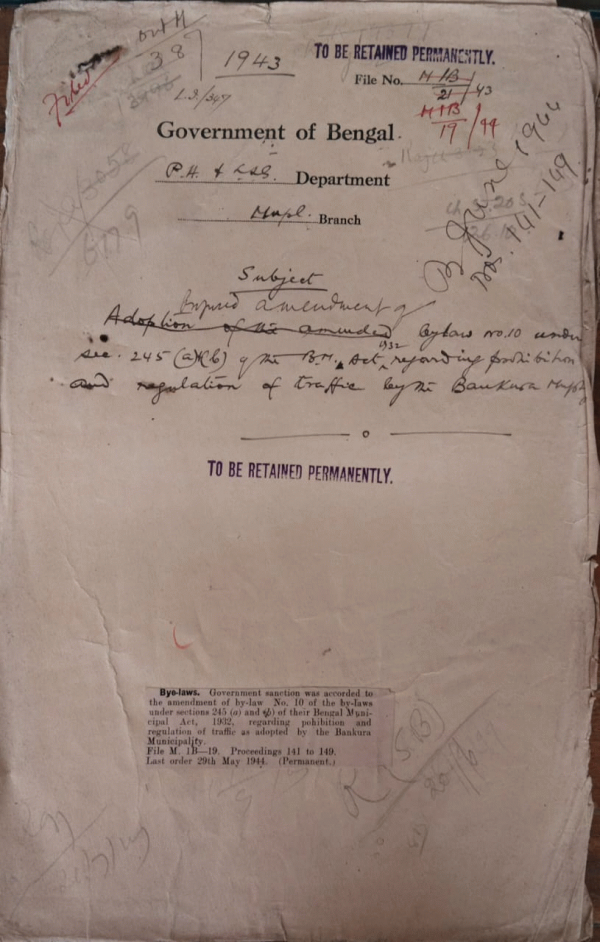 38
1943
TO BE RETAINED PERMANENTLY.
Filed
L.S./347
File No. M 1B/21/43
M 1B/19/44
Government of Bengal.
P.H. & L.S.G. Department
Mupl. Branch
B June 1944
Nos. 141-149
Subject
Proposed amendment of
Adoption of the amended bylaw no. 10 under
sec. 245 (a)&(b) of the B.M. Act, 1932 regarding prohibition
and regulation of traffic by the Bankura Mupty
TO BE RETAINED PERMANENTLY.
Bye-laws. Government sanction was accorded to
the amendment of by-law No. 10 of the by-laws
under sections 245 (a) and (b) of their Bengal Muni-
cipal Act, 1932, regarding pohibition and
regulation of traffic as adopted by the Bankura
Municipality.
File M. 1B—19. Proceedings 141 to 149.
Last order 29th May 1944. (Permanent.)